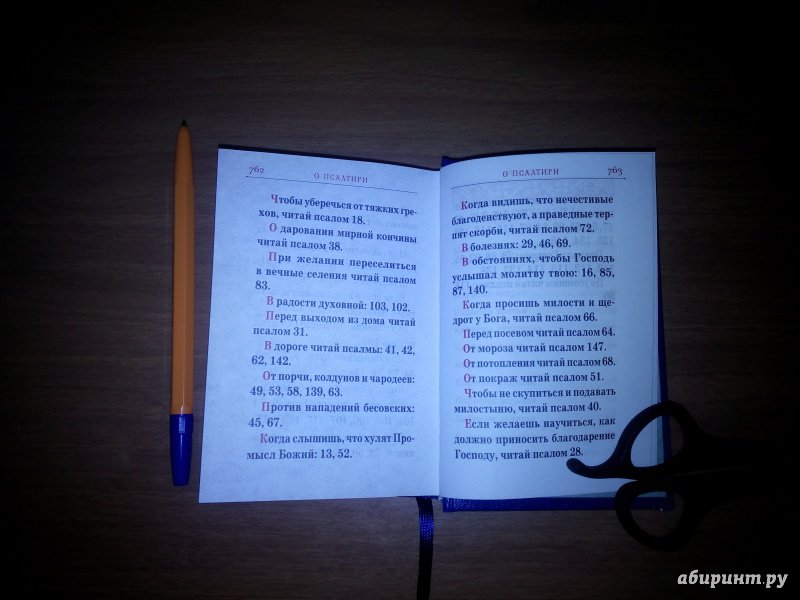 762
О ПСАЛТИРИ
Чтобы уберечься от тяжких гре-
хов, читай псалом 18.
О даровании мирной кончины
читай псалом 38.
При желании переселиться
в вечные селения читай псалом
83.
В радости духовной: 103, 102.
Перед выходом из дома читай
псалом 31.
В дороге читай псалмы: 41, 42,
62, 142.
От порчи, колдунов и чародеев:
49, 53, 58, 139, 63.
Против нападений бесовских:
45, 67.
Когда слышишь, что хулят Про-
мысл Божий: 13, 52.
О ПСАЛТИРИ
763
Когда видишь, что нечестивые
благоденствуют, а праведные тер-
пят скорби, читай псалом 72.
В болезнях: 29, 46, 69.
В обстояниях, чтобы Господь
услышал молитву твою: 16, 85,
87, 140.
Когда просишь милости и ще-
дрот у Бога, читай псалом 66.
Перед посевом читай псалом 64.
От мороза читай псалом 147.
От потопления читай псалом 68.
От покраж читай псалом 51.
Чтобы не скупиться и подавать
милостыню, читай псалом 40.
Если желаешь научиться, как
должно приносить благодарение
Господу, читай псалом 28.
абиринт.ру